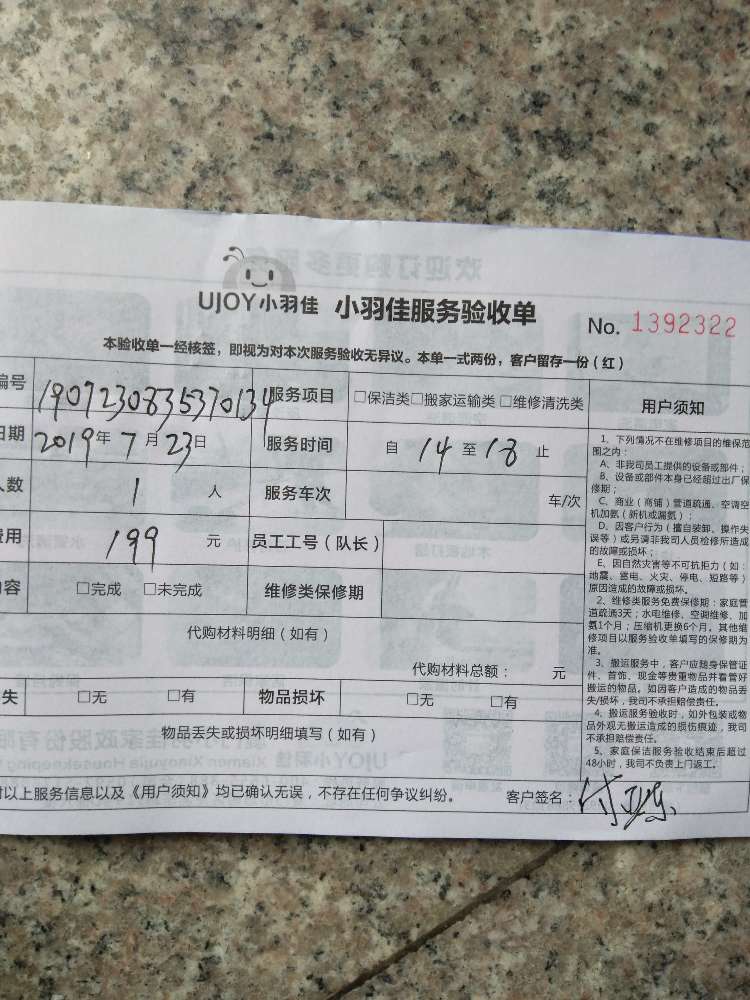 UJOY小羽佳 小羽佳服务验收单 No. 1392322
本验收单一经核签，即视为对本次服务验收无异议。本单一式两份，客户留存一份（红）
编号 1907230835370134 服务项目 □保洁类□搬家运输类□维修清洗类
日期 2019年7月23日 服务时间 自 14 至 18 止
人数 1 人 服务车次 车/次
费用 199 元 员工工号（队长）
内容 □完成 □未完成 维修类保修期
代购材料明细（如有）
代购材料总额： 元
失 □无 □有 物品损坏 □无 □有
物品丢失或损坏明细填写（如有）
对以上服务信息以及《用户须知》均已确认无误，不存在任何争议纠纷。 客户签名：
用户须知
1、下列情况不在维修项目的维保范
围之内：
A、非我司员工提供的设备或部件；
B、设备或部件本身已经超过出厂保
修期；
C、商业（商铺）管道疏通、空调空
机加氨（新机或漏氨）；
D、因客户行为（擅自装卸、操作失
误等）或另请非我司人员检修所造成
的故障或损坏；
E、因自然灾害等不可抗拒力（如：
地震、雷电、火灾、停电、短路等）
原因造成的故障或损坏。
2、维修类服务免费保修期：家庭管
道疏通3天；水电维修、空调维修、加
氨1个月；压缩机更换6个月。其他维
修项目以服务验收单填写的保修期为
准。
3、搬运服务中，客户应随身保管证
件、首饰、现金等贵重物品并看管好
搬运的物品。如因客户造成的物品丢
失/损坏，我司不承担赔偿责任。
4、搬运服务验收时，如外包装或物
品外观无搬运造成的损伤痕迹，我司
不承担赔偿责任。
5、家庭保洁服务验收结束后超过
48小时，我司不负责上门返工。